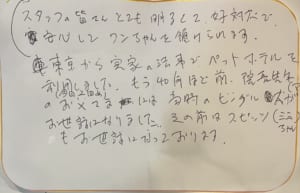 スタッフの皆さんとても明るくて、好対応で、
安心してワンちゃんを預けられます。
東京から実家の法事でペットホテルを
利用しました。もう40年ほど前、院長先生
のお父さまには当時の
お世話になりました。その前はスピッツ
もお世話になっております。